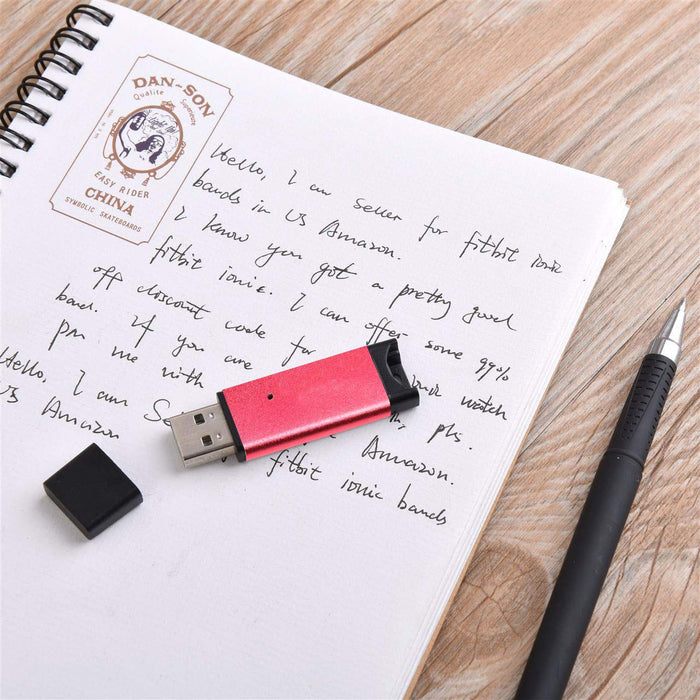 DAN-SON
Qualite Superieure
Light My
EASY RIDER
CHINA
SYMBOLIC SKATEBOARDS
Hello, I am seller for fitbit ionic
bands in US Amazon.
I know you got a pretty good
fitbit ionic. I can offer some 99%
off discount code for ionic watch
band. If you are pls.
pm me with
Hello, I am Se Amazon.
US Amazon fitbit ionic bands